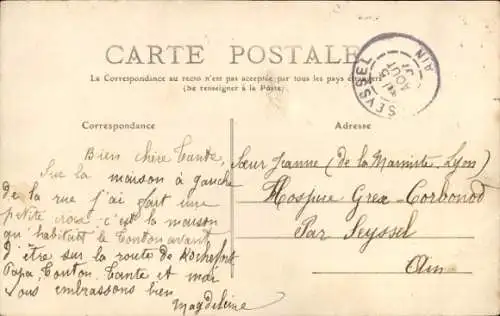 CARTE POSTALE
La Correspondance au recto n'est pas acceptée par tous les pays étrangers
(Se renseigner à la Poste)
SEYSSEL
AOUT
AIN
Correspondance
Adresse
Bien chère Tante,
Sur la maison à gauche
de la rue j'ai fait une
petite croix c'est la maison
qu'habitait le Tonton avant
d'être sur la route de Rochefort
Papa, Tonton, Tante et moi
Vous embrassons bien
Magdeleine
Sœur Jeanne (de la Marmiste, Lyon)
Hospice Grex-Corbonod
Par Seyssel
Ain